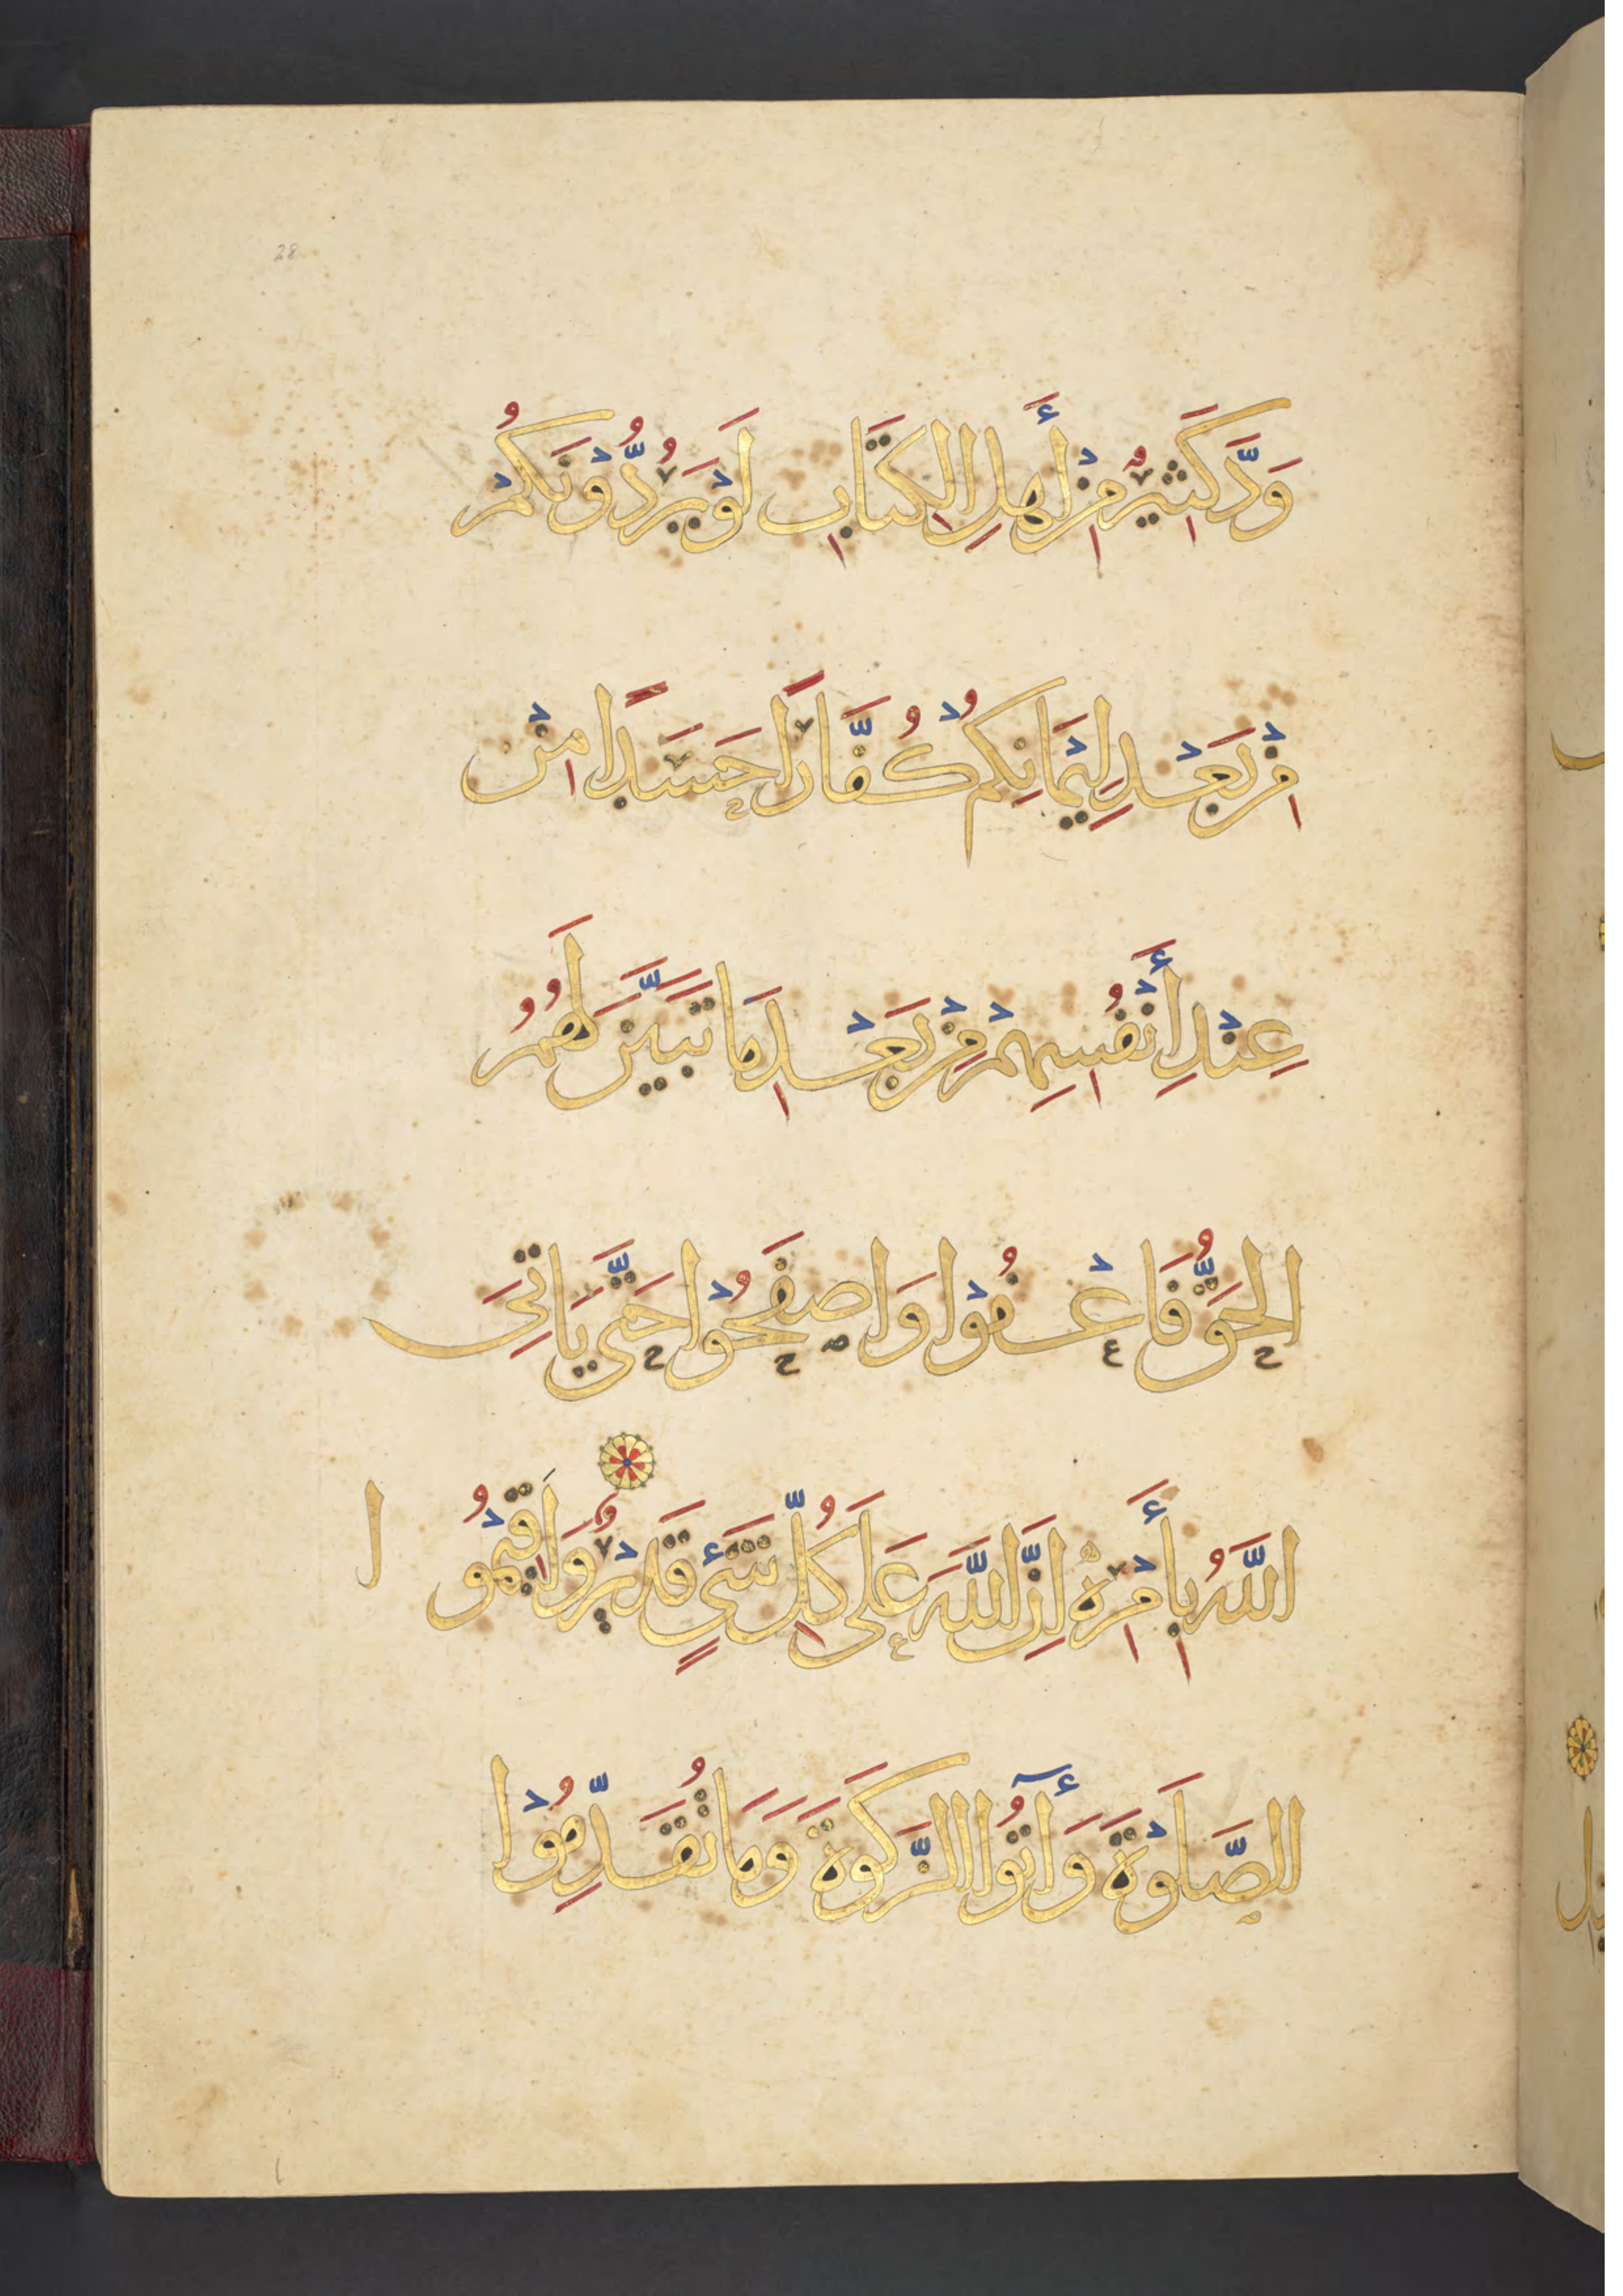 28
وَدَّ كَثِيرٌ مِنْ أَهْلِ الْكِتَابِ لَوْ يَرُدُّوْنَكُمْ
مِنْ بَعْدِ اِيْمَانِكُمْ كُفَّارًا حَسَدًا مِنْ
عِنْدِ أَنْفُسِهِمْ مِنْ بَعْدِ مَا تَبَيَّنَ لَهُمُ
الحَقُّ فَاعْفُوْا وَاصفَحُوْا حَتَّى يَاتِىَ
اللَّهُ بِأَمْرِهِ اِنَّ اللَّهَ عَلَى كُلِّ شَىْءٍ قَدِيْرٌ وَاَقِيْمُو ا
الصَّلَوْةَ وَأٓتُوا الزَّكَوةَ وَمَا تُقَدِّمُوْا